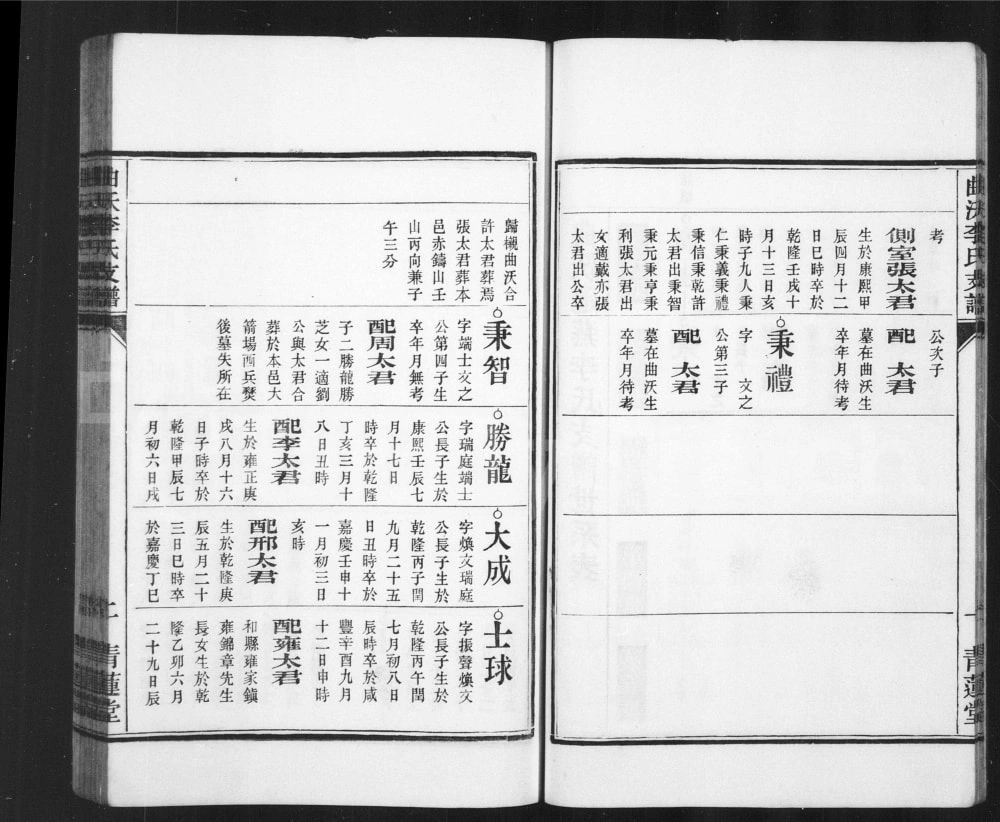 曲沃李氏支譜
青蓮堂
考
側室張太君
生於康熙甲
辰四月十二
日巳時卒於
乾隆壬戌十
月十三日亥
時子九人秉
仁秉義秉禮
秉信秉乾許
太君出秉智
秉元秉亨秉
利張太君出
女適戴亦張
太君出公卒
公次子
配 太君
墓在曲沃生
卒年月待考
秉禮
字 文之
公第三子
配 太君
墓在曲沃生
卒年月待考
歸櫬曲沃合
許太君葬焉
張太君葬本
邑赤鑄山壬
山丙向兼子
午三分
秉智
字端士文之
公第四子生
卒年月無考
配周太君
子二勝龍勝
芝女一適劉
公與太君合
葬於本邑大
箭場西兵燹
後墓失所在
勝龍
字瑞庭端士
公長子生於
康熙壬辰七
月十七日
時卒於乾隆
丁亥三月十
八日丑時
配李太君
生於雍正庚
戌八月十六
日子時卒於
乾隆甲辰七
月初六日戌
大成
字煥文瑞庭
公長子生於
乾隆丙子閏
九月二十五
日丑時卒於
嘉慶壬申十
一月初三日
亥時
配邢太君
生於乾隆庚
辰五月二十
三日巳時卒
於嘉慶丁巳
士球
字振聲煥文
公長子生於
乾隆丙午閏
七月初八日
辰時卒於咸
豐辛酉九月
十二日申時
配雍太君
和縣雍家鎮
雍錦章先生
長女生於乾
隆乙卯六月
二十九日辰
曲沃李氏支譜
青蓮堂